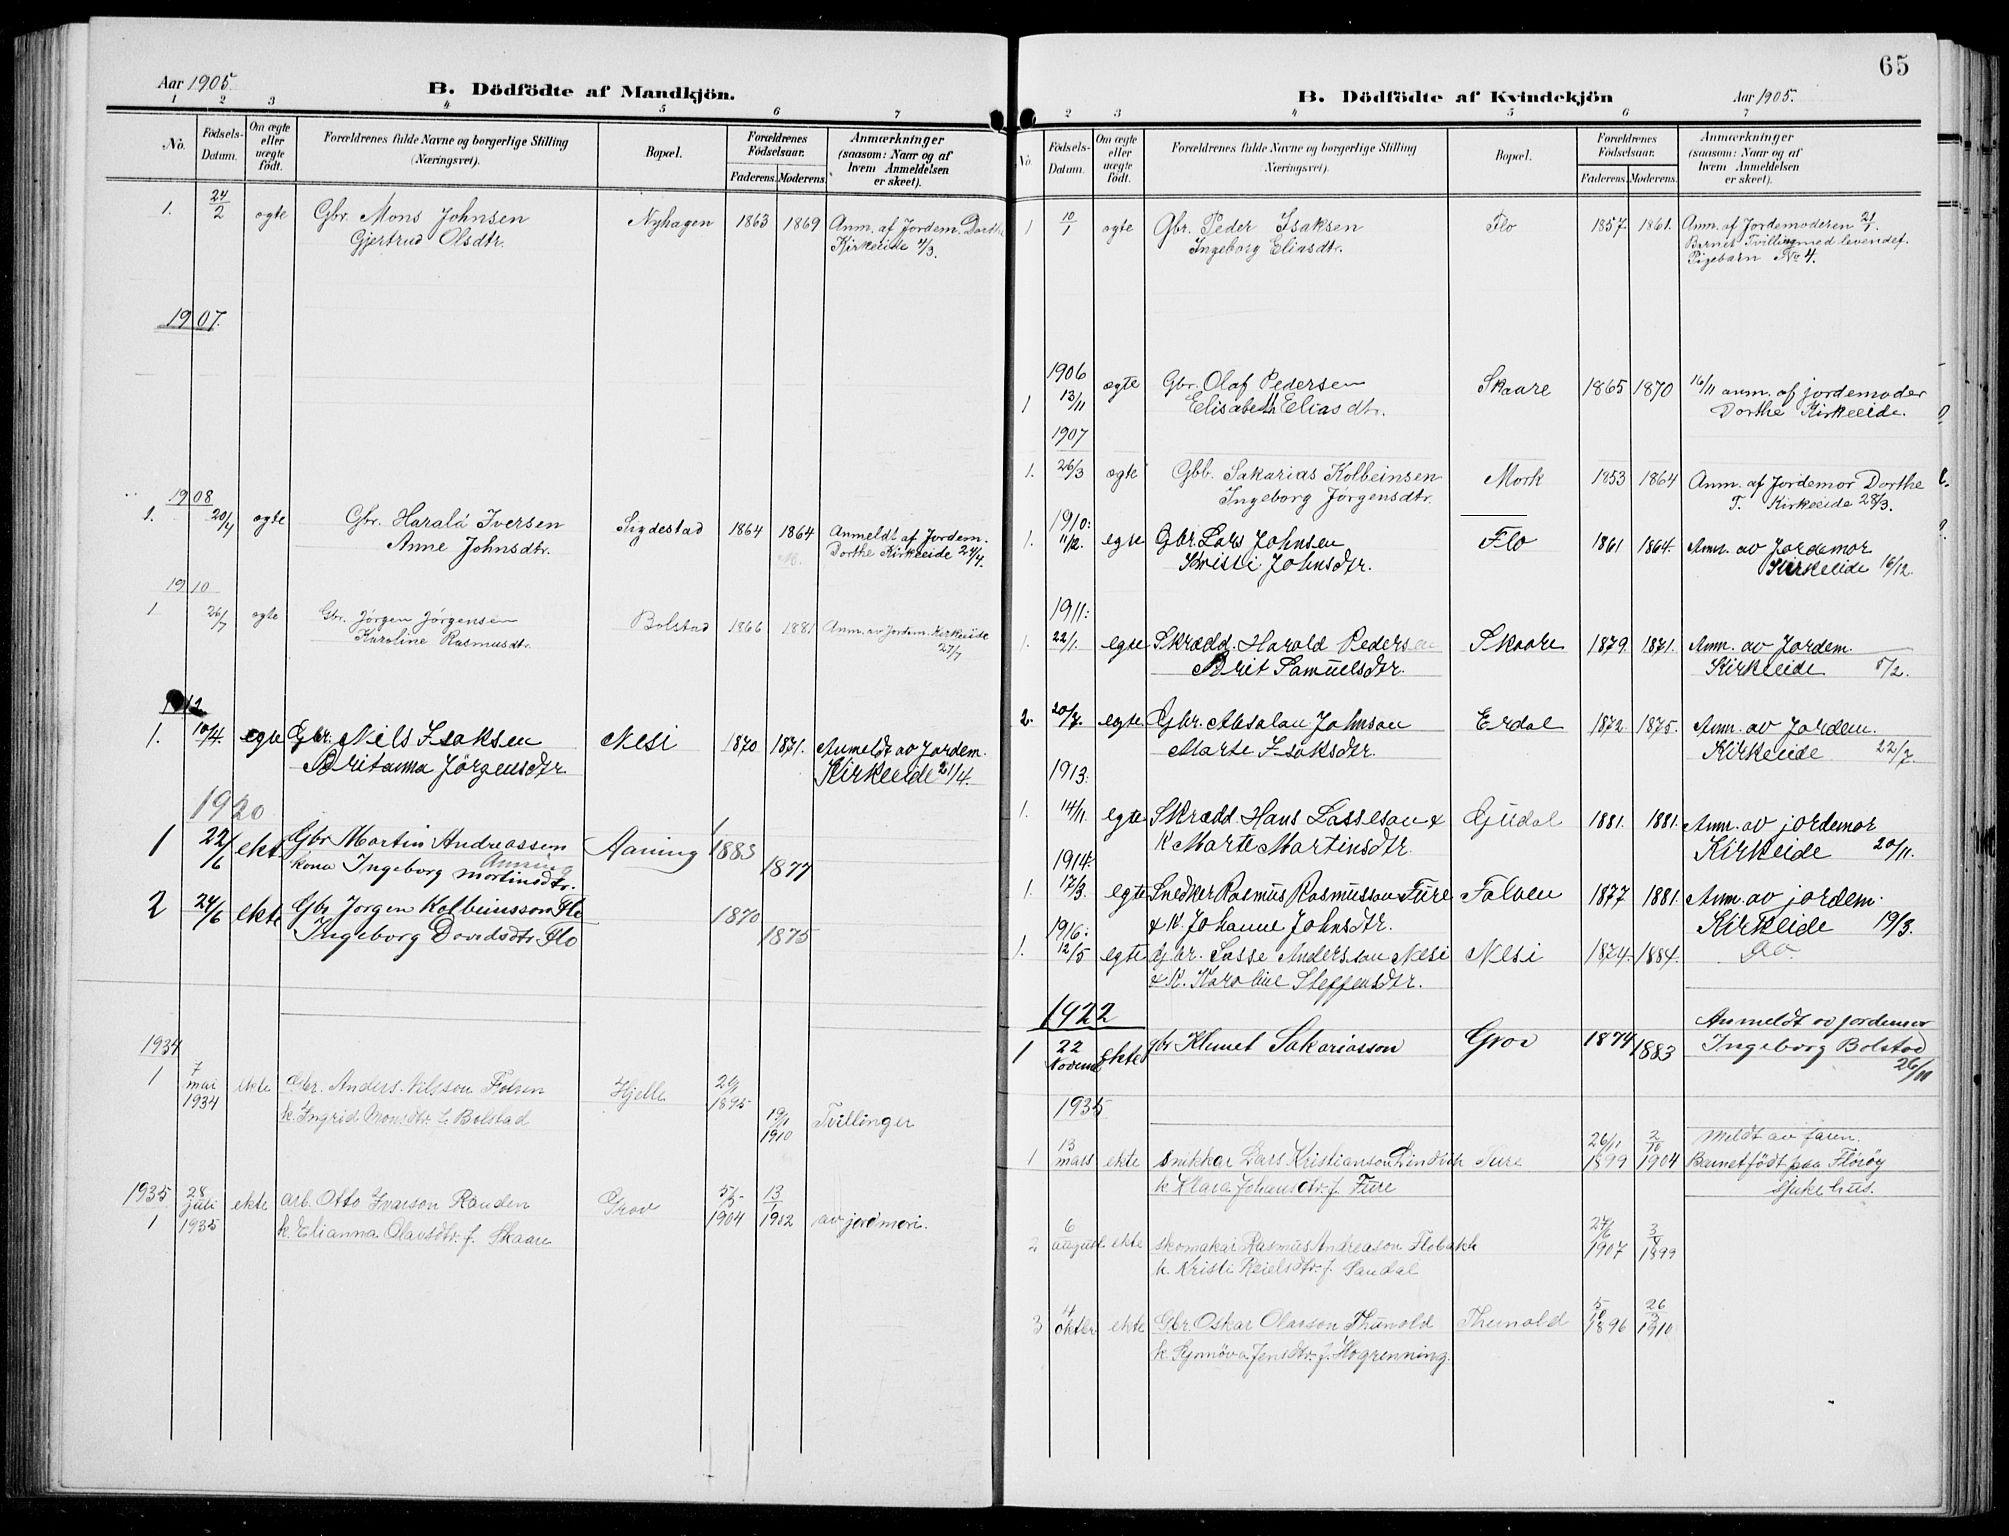 Aar 1905.
B. Dödfödte af Mandkjön.
1 2 3 4 5 6 7
No.
Födsels-Datum.
Om ægte eller uægte födt.
Forældrenes fulde Navne og borgerlige Stilling (Næringsvei).
Bopæl.
Forældrenes Födselsaar.
Faderens. Moderens.
Anmærkninger (saasom: Naar og af hvem Anmeldelsen er skeet).
1. 24/2 ægte Gbr. Mons Johnsen Nyhagen 1863 1869 Anm. af Jordem. Dorthe
Gjertrud Olsdtr. Kirkeeide 4/3.
1907.
1908
1. 20/4 ægte Gbr. Harald Iversen Sigdestad 1864 1864 Anmeldt af Jordem.
Anne Johnsdtr. Dorthe Kirkeeide 24/4.
1910
1 26/7 ægte Gbr. Jørgen Jørgensen Bolstad 1866 1881 Anm. av Jordem. Kirkeeide
Karoline Rasmusdtr. 27/7
1912
1. 10/4. egte Gbr. Nils Isaksen Nesi 1870 1871. Anmeldt av Jordem.
Britanna Jørgensdtr Kirkeeide 21/4.
1920
1 22/6 ekte Gbr Martin Andreassen Aaning 1883 1877
kona Ingeborg Martinsdtr.
2 24/6 ekte Gbr Jørgen Kolbeinsson Flo 1870 1875
Ingeborg Davidsdtr. Flo
1934
1 7 mai 1934 ekte Gbr. Anders Nilsson Folven Hjelle 1895 19/1 1910 Tvillinger
k. Ingrid Monsdtr. f. Bolstad
1935. 1 28 juli 1935 ekte arb. Otto Ivarson Randen Grov 1904 13/1 1902 av jordmori.
k. Elianna Olavsdtr. f. Skaare
65
B. Dödfödte af Kvindekjön
Aar 1905.
2 3 4 5 6 7
No.
Födsels-Datum.
Om ægte eller uægte födt.
Forældrenes fulde Navne og borgerlige Stilling (Næringsvei).
Bopæl.
Forældrenes Födselsaar.
Faderens. Moderens.
Anmærkninger (saasom: Naar og af hvem Anmeldelsen er skeet).
1 10/1 ægte Gbr. Peder Isaksen Flo 1857 1861. Anm. af Jordemoderen 21/1.
Ingeborg Eliasdtr. Barnet Tvilling med levendef.
Pigebarn No 4.
1906
1 13/11 ægte Gbr. Olaf Pedersen Skaare 1865 1870 16/11 anm. af jordemoder
Elisabeth Eliasdtr. Dorthe Kirkeeide.
1907
1. 26/3 ægte Gbb. Sakarias Kolbeinsen Mork 1853 1864 Anm. af Jordemor Dorthe
Ingeborg Jørgensdtr. T. Kirkeeide 28/3.
1910:
1. 11/12. egte Gbr. Lars Johnsen Flo 1861 1864. Anm. av Jordemor
Kristi Johnsdtr. Kirkeeide 16/12.
1911:
1. 22/1. egte Skrædd. Harald Pedersen Skaare 1879. 1871. Anm. av Jordem.
Brit Samuelsdtr. Kirkeeide 5/2.
2. 20/7. egte Gbr. Absalon Johnson Erdal 1872. 1875. Anm. av Jordem.
Marte Isaksdtr. Kirkeeide 22/7
1913.
1. 14/11. egte Skrædd Hans Lasseson & Gjudal 1881. 1881. Anm. av jordemor
K Marte Martinsdtr. Kirkeide 20/11.
1914:
1. 17/3. egte Snedker Rasmus Rasmusson Fure Folven 1877 1881. Anm. av jordem.
& K. Johanne Johnsdtr. Kirkeide 19/3.
1916:
1. 12/5 egte gbr. Lasse Andersson Nesi Nesi 1874. 1884. do.
& K. Karoline Steffensdtr.
1922
1 22 Novemb ekte gbr Klemet Sakariasson Grov 1874 1883 Anmeldt av jordemor
Ingeborg Bolstad 26/11
1935
1 13 mars ekte snikkar Lars Kristianson Lindvik Fure 26/11 1899 2/10 1904 Meldt av faren.
k. Klara Johansdtr. f. Fure Barnet født paa Florøy
sjukehus.
2 6 august ekte skomakar Rasmus Andreason Flobakk 1907 1899
k. Kristi Reielsdtr. f. Sandal
3 4 oktbr ekte Gbr. Oskar Olavson Thunold Thunold 5/10 1896 26/3 1910
k. Synnøva Jensdtr. f. Høgrenning.